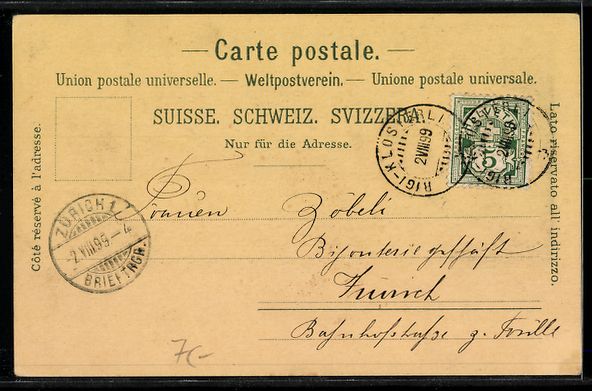 — Carte postale. —
Union postale universelle. — Weltpostverein. — Unione postale universale.
SUISSE. SCHWEIZ. SVIZZERA.
Nur für die Adresse.
Côté réservé à l'adresse.
Lato riservato all' indirizzo.
RIGI-KLÖSTERLI
2 VIII 99
HELVETIA
5
RIGI
VIII 99
ZÜRICH 1
-2 VIII 99 - 4
BRIEFTRGR.
Frauen Zöbeli
Bijouteriegeschäft
Zürich
Bahnhofstraße z.
7.-